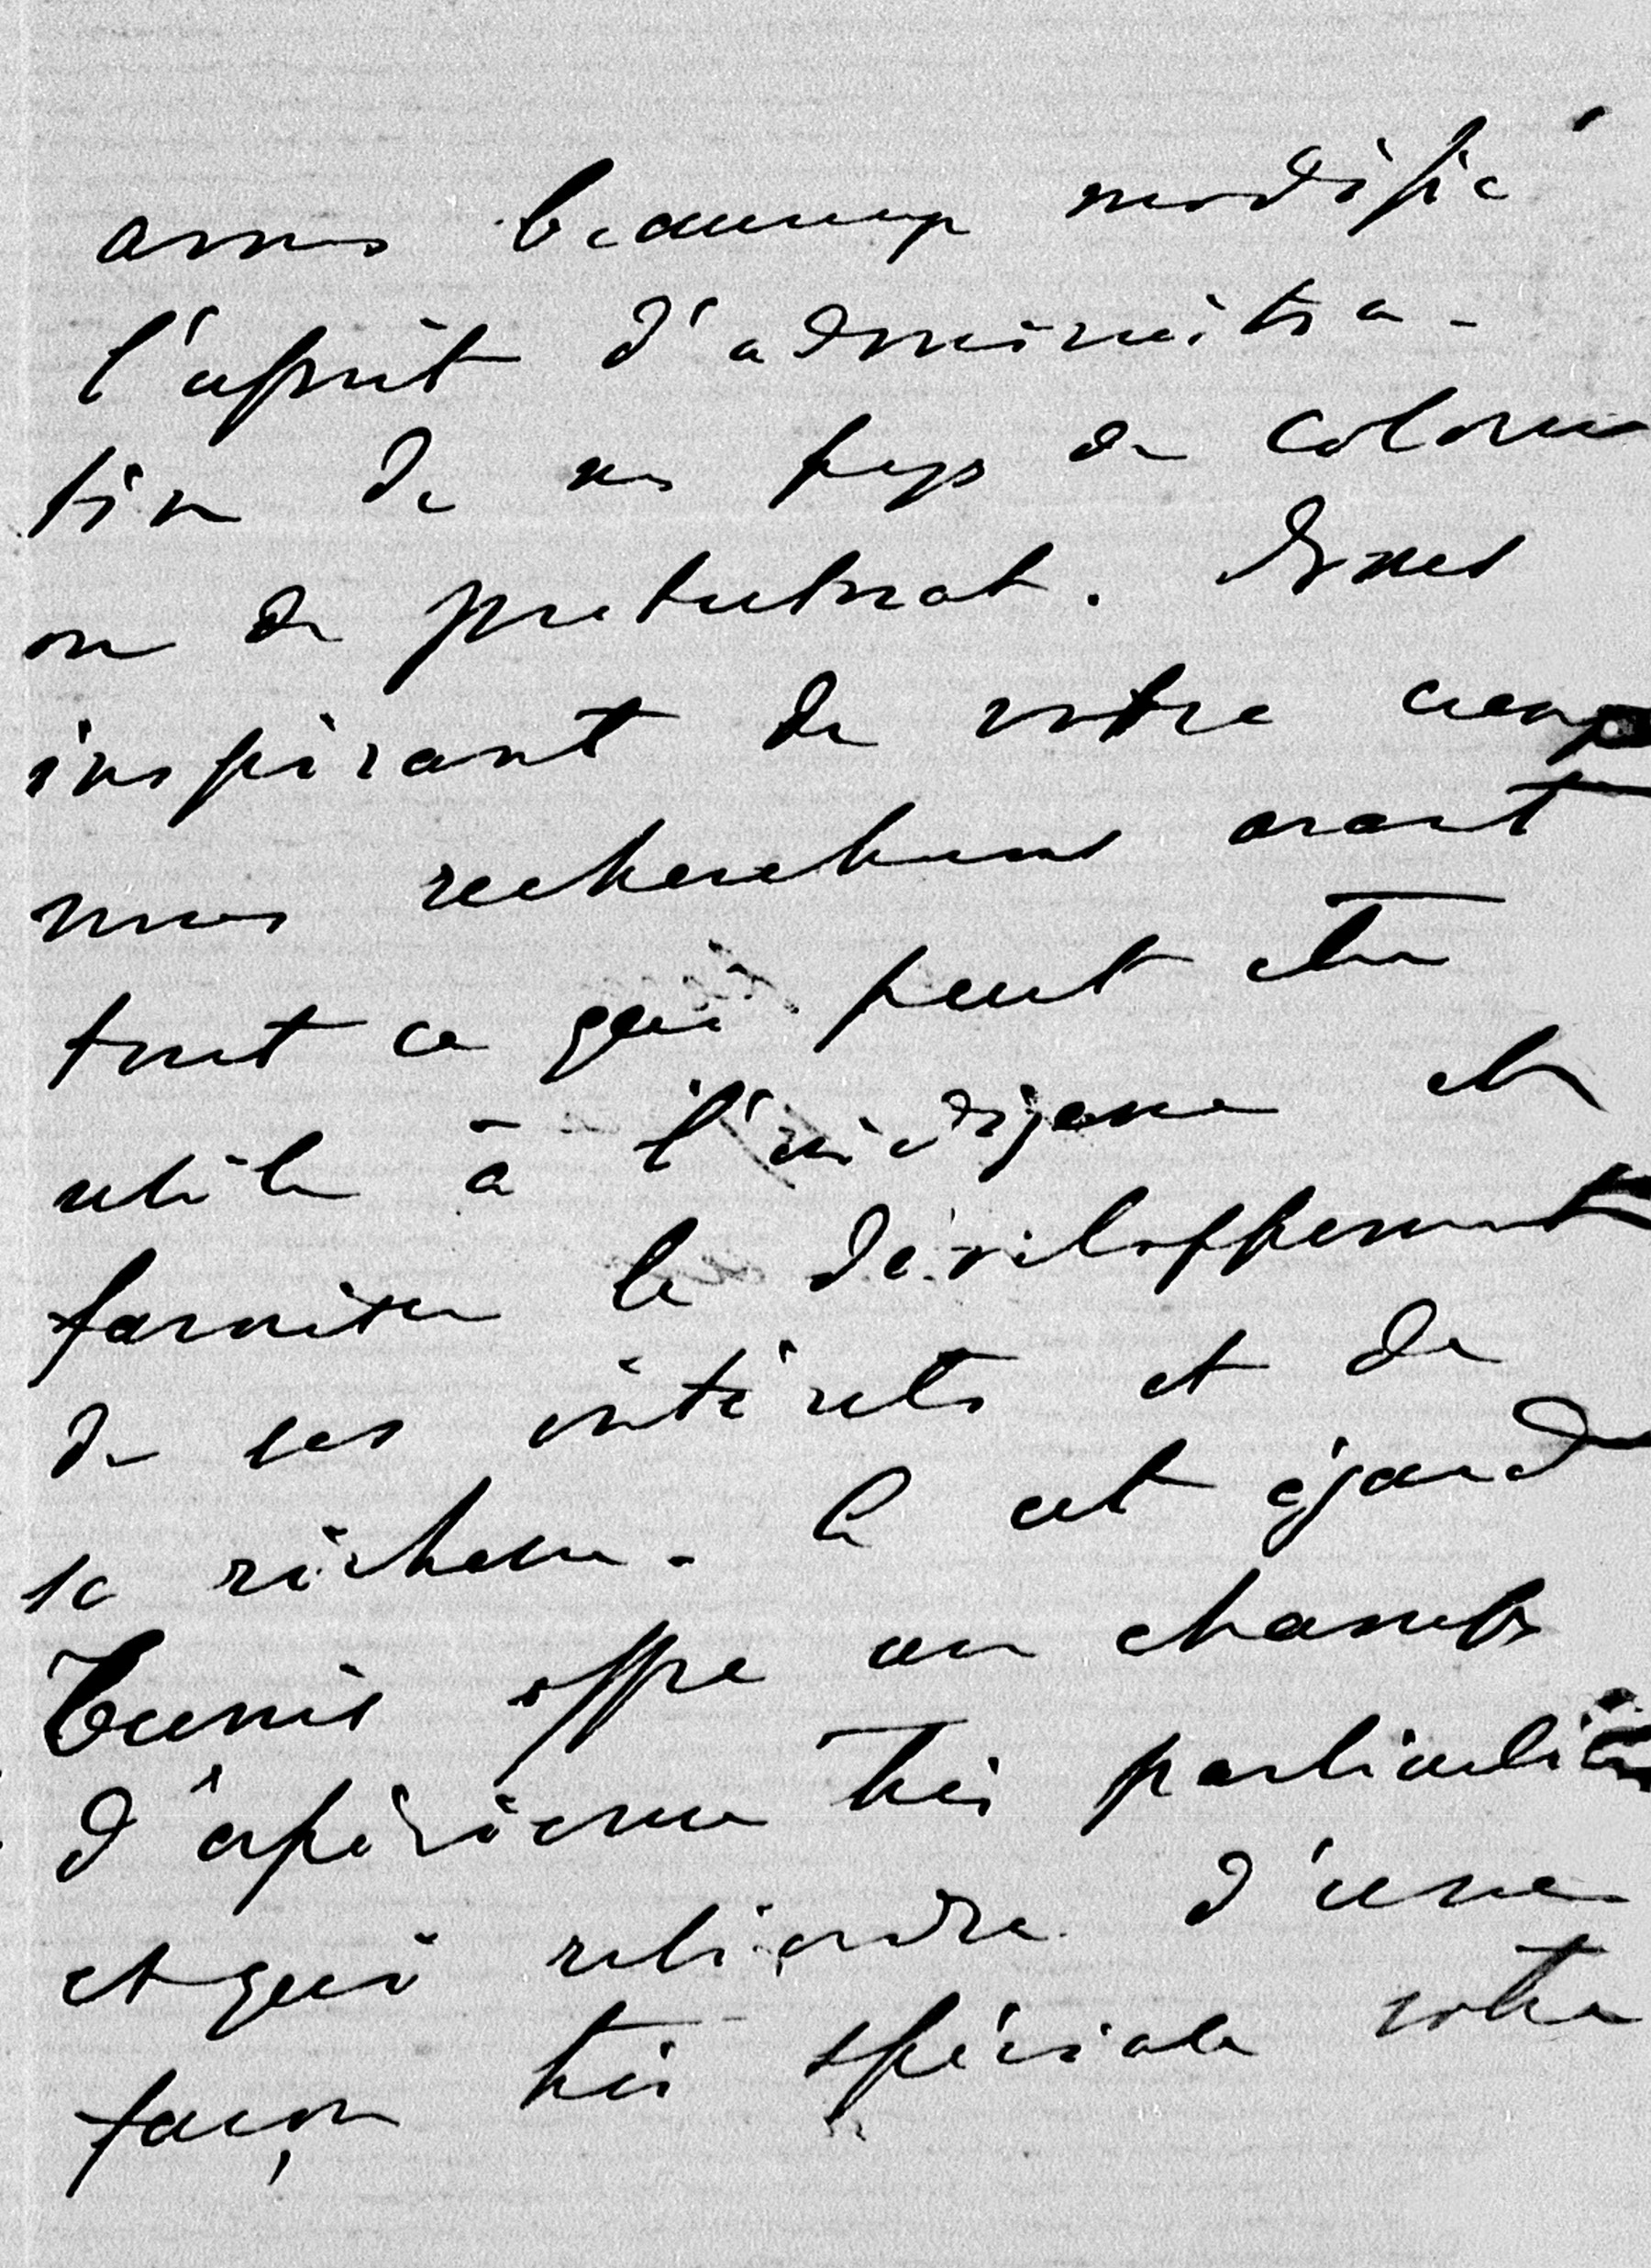 avons beaucoup modifié
l'esprit d'administra-
tion de nos pays de colonie
ou de protectorat. Nous
inspirant de votre
nous recherchons avant
tout ce qui peut être
utile à l'indigène et
favoriser le développement
de ses intérêts et de
sa richesse. A cet égard
Tunis offre un champ
d'expérience très particulier
et qui retiendra d'une
façon très spéciale votre